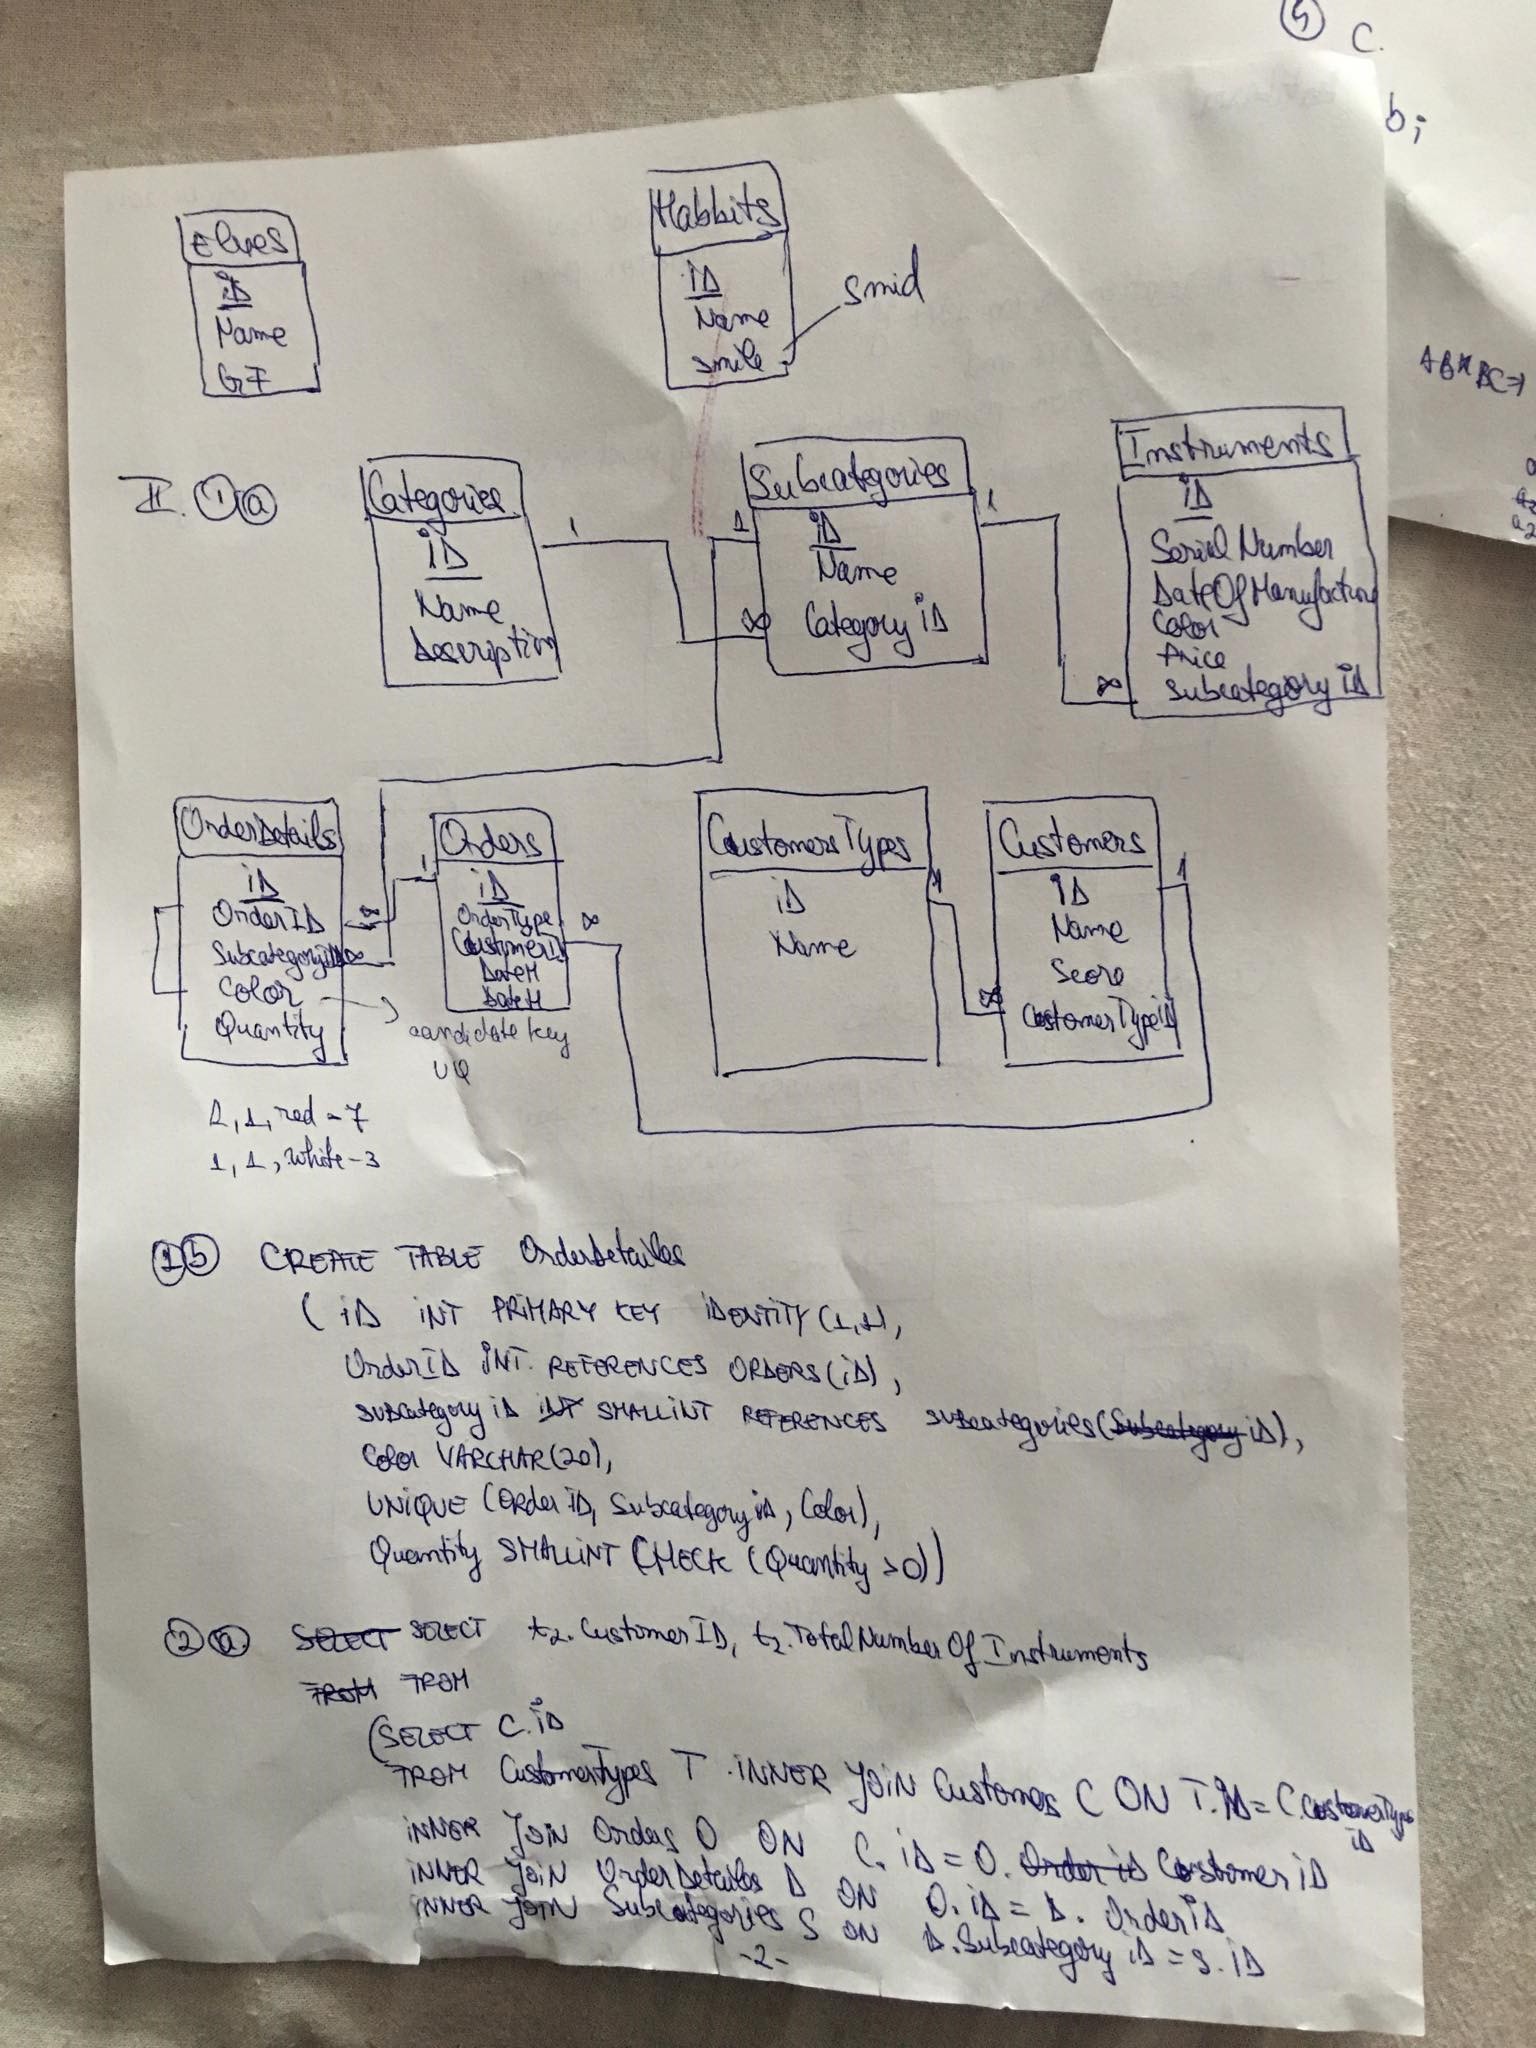 5 C.
b;
Elves
ID
Name
GF
Habbits
ID
Name
smile
smid
ABX BC⇒
II. 1 a
Categories
ID
Name
Description
1
Subcategories
ID
Name
Category ID
1
1
∞
Instruments
ID
Serial Number
DateOfManufacture
Color
Price
Subcategory ID
∞
OrderDetails
ID
OrderID
SubcategoryID
Color
Quantity
∞
∞
1
Orders
ID
OrderType
CustomerID
DateH
DateH
∞
candidate key
UQ
CustomersTypes
ID
Name
1
Customers
ID
Name
Score
CustomerTypeID
1
∞
1, 1, red - 7
1, 1, white - 3
1 b CREATE TABLE OrderDetailes
( ID INT PRIMARY KEY IDENTITY (1,1),
OrderID INT REFERENCES ORDERS(ID),
Subcategory ID INT SMALLINT REFERENCES Subcategories(Subcategory ID),
Color VARCHAR(20),
UNIQUE (Order ID, Subcategory ID, Color),
Quantity SMALLINT CHECK (Quantity >0))
2 a. SELECT SELECT t2.CustomerID, t2.TotalNumberOfInstruments
FROM FROM
(SELECT C.ID
FROM CustomerTypes T INNER JOIN Customers C ON T.ID = C.CustomerType
ID
INNER JOIN Orders O ON C.ID = O.Order ID Customer ID
INNER JOIN OrderDetailes D ON O.ID = D.OrderID
INNER JOIN Subcategories S ON D.Subcategory ID = S.ID
-2-